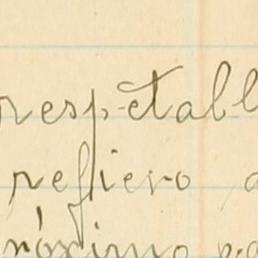 respetabl
refiero a
róximo pa